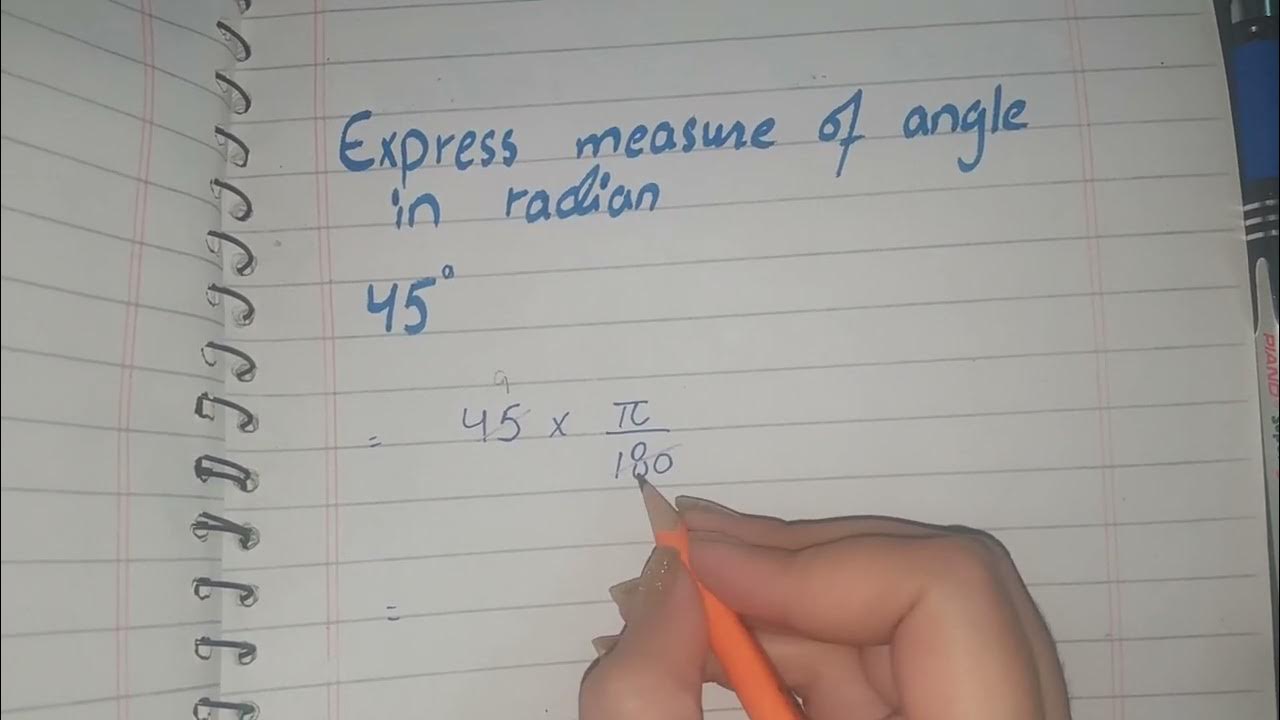 Express measure of angle
in radian
45°
9
= 45 x π/180
=
PIANO